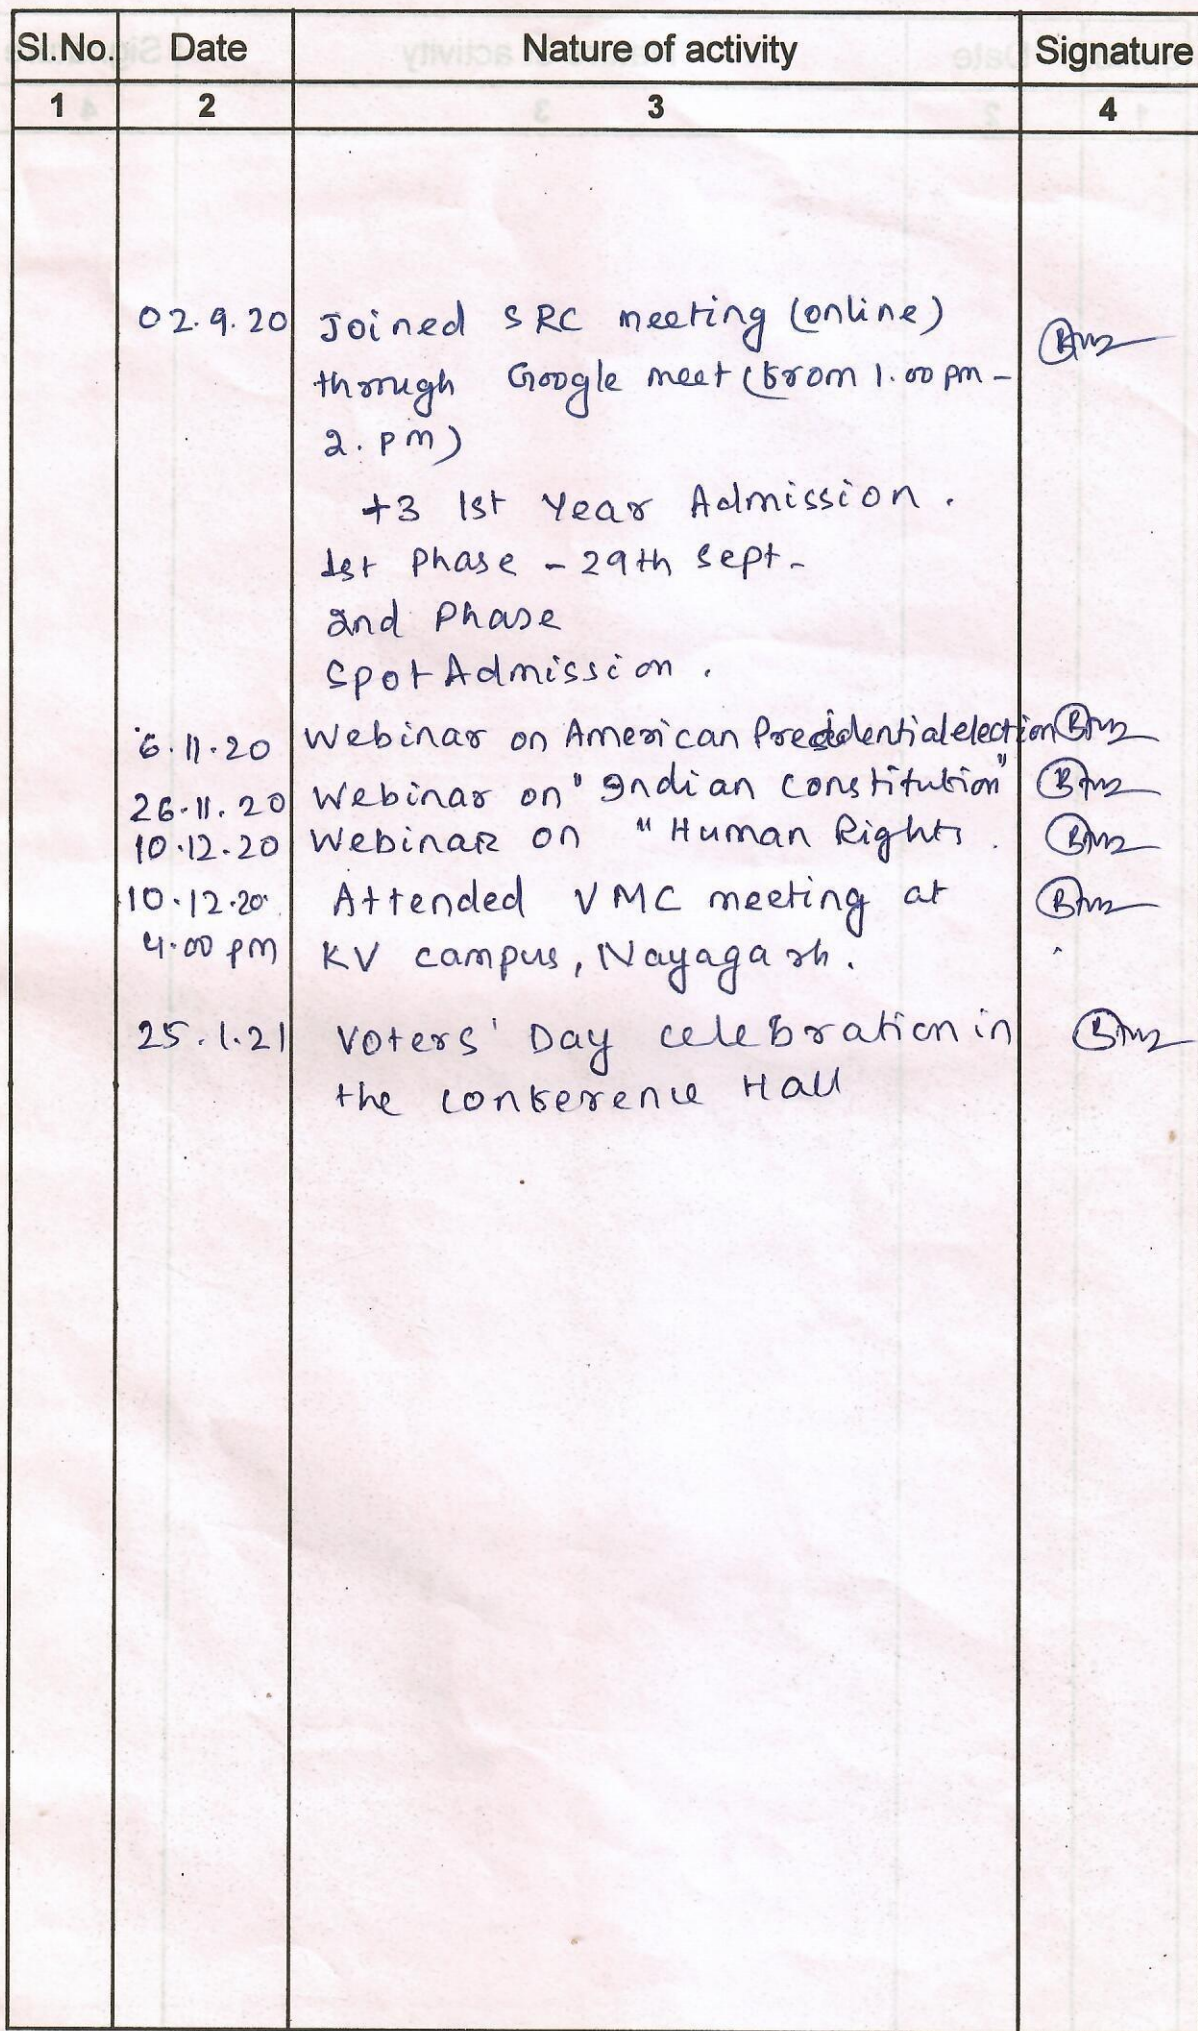 Sl.No. Date Nature of activity Signature
1 2 3 4
02.9.20 Joined SRC meeting (online)
through Google meet (from 1.00 pm -
2. pm)
+3 1st Year Admission.
1st Phase - 29th Sept -
2nd Phase
Spot Admission.
6.11.20 Webinar on American Presidential election
26.11.20 Webinar on "Indian Constitution"
10.12.20 Webinar on "Human Rights.
10.12.20 Attended VMC meeting at
4.00 pm KV campus, Nayagarh.
25.1.21 Voters' Day celebration in
the conference Hall